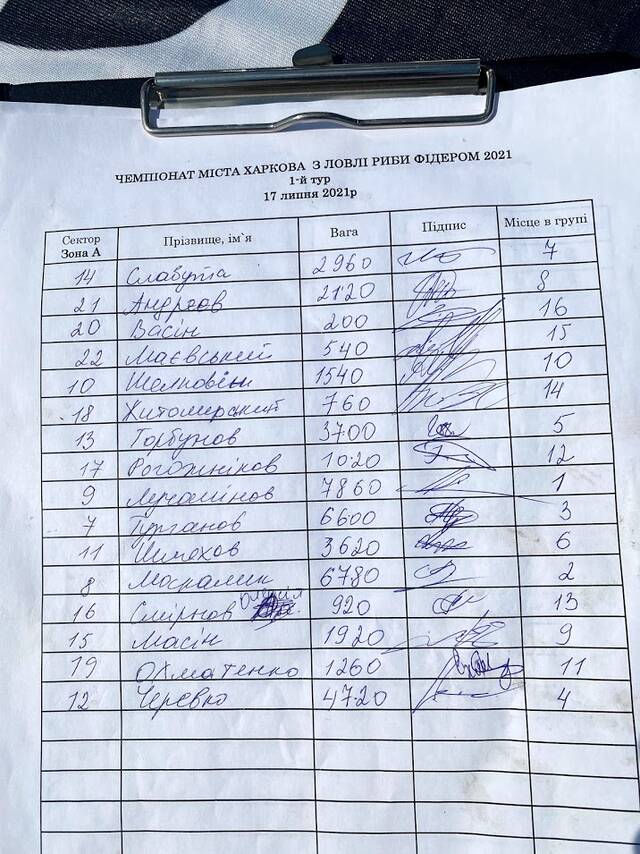 ЧЕМПІОНАТ МІСТА ХАРКОВА З ЛОВЛІ РИБИ ФІДЕРОМ 2021
1-й тур
17 липня 2021р
Сектор Зона А Прізвище, ім`я Вага Підпис Місце в групі
14 Слабута 2960 7
21 Андрєєв 2120 8
20 Васін 200 16
22 Маєвський 540 15
10 1540 10
18 Житомирский 760 14
13 Горбунов 3700 5
17 Рогожніков 1020 12
9 7860 1
7 Турганов 6600 3
11 Шмохов 3620 6
8 Москалик 6780 2
16 Смірнов 920 13
15 Масін 1920 9
19 Охматенко 1260 11
12 Черевко 4720 4